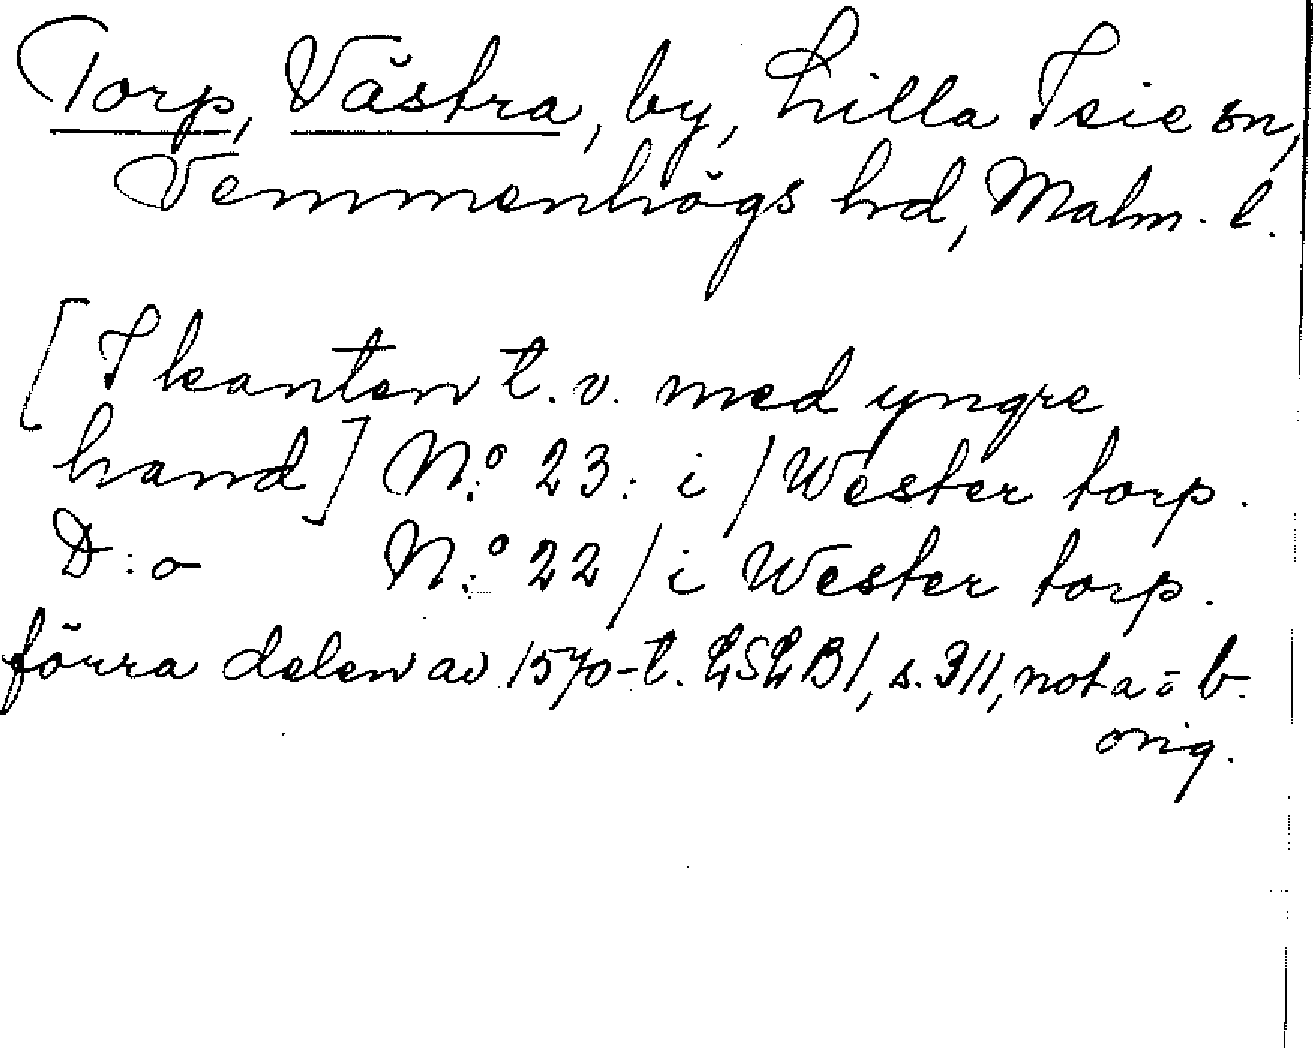 Torp, Västra, by, Lilla Isie sn,
Vemmenhögs hd, Malm. l.
[I kanten t.v. med yngre
hand] N:o 23: i / Wester torp.
D:o N:o 22 / i Wester torp.
förra delen av 1570-t. LSLB1, s. 311, not a o b.
orig.